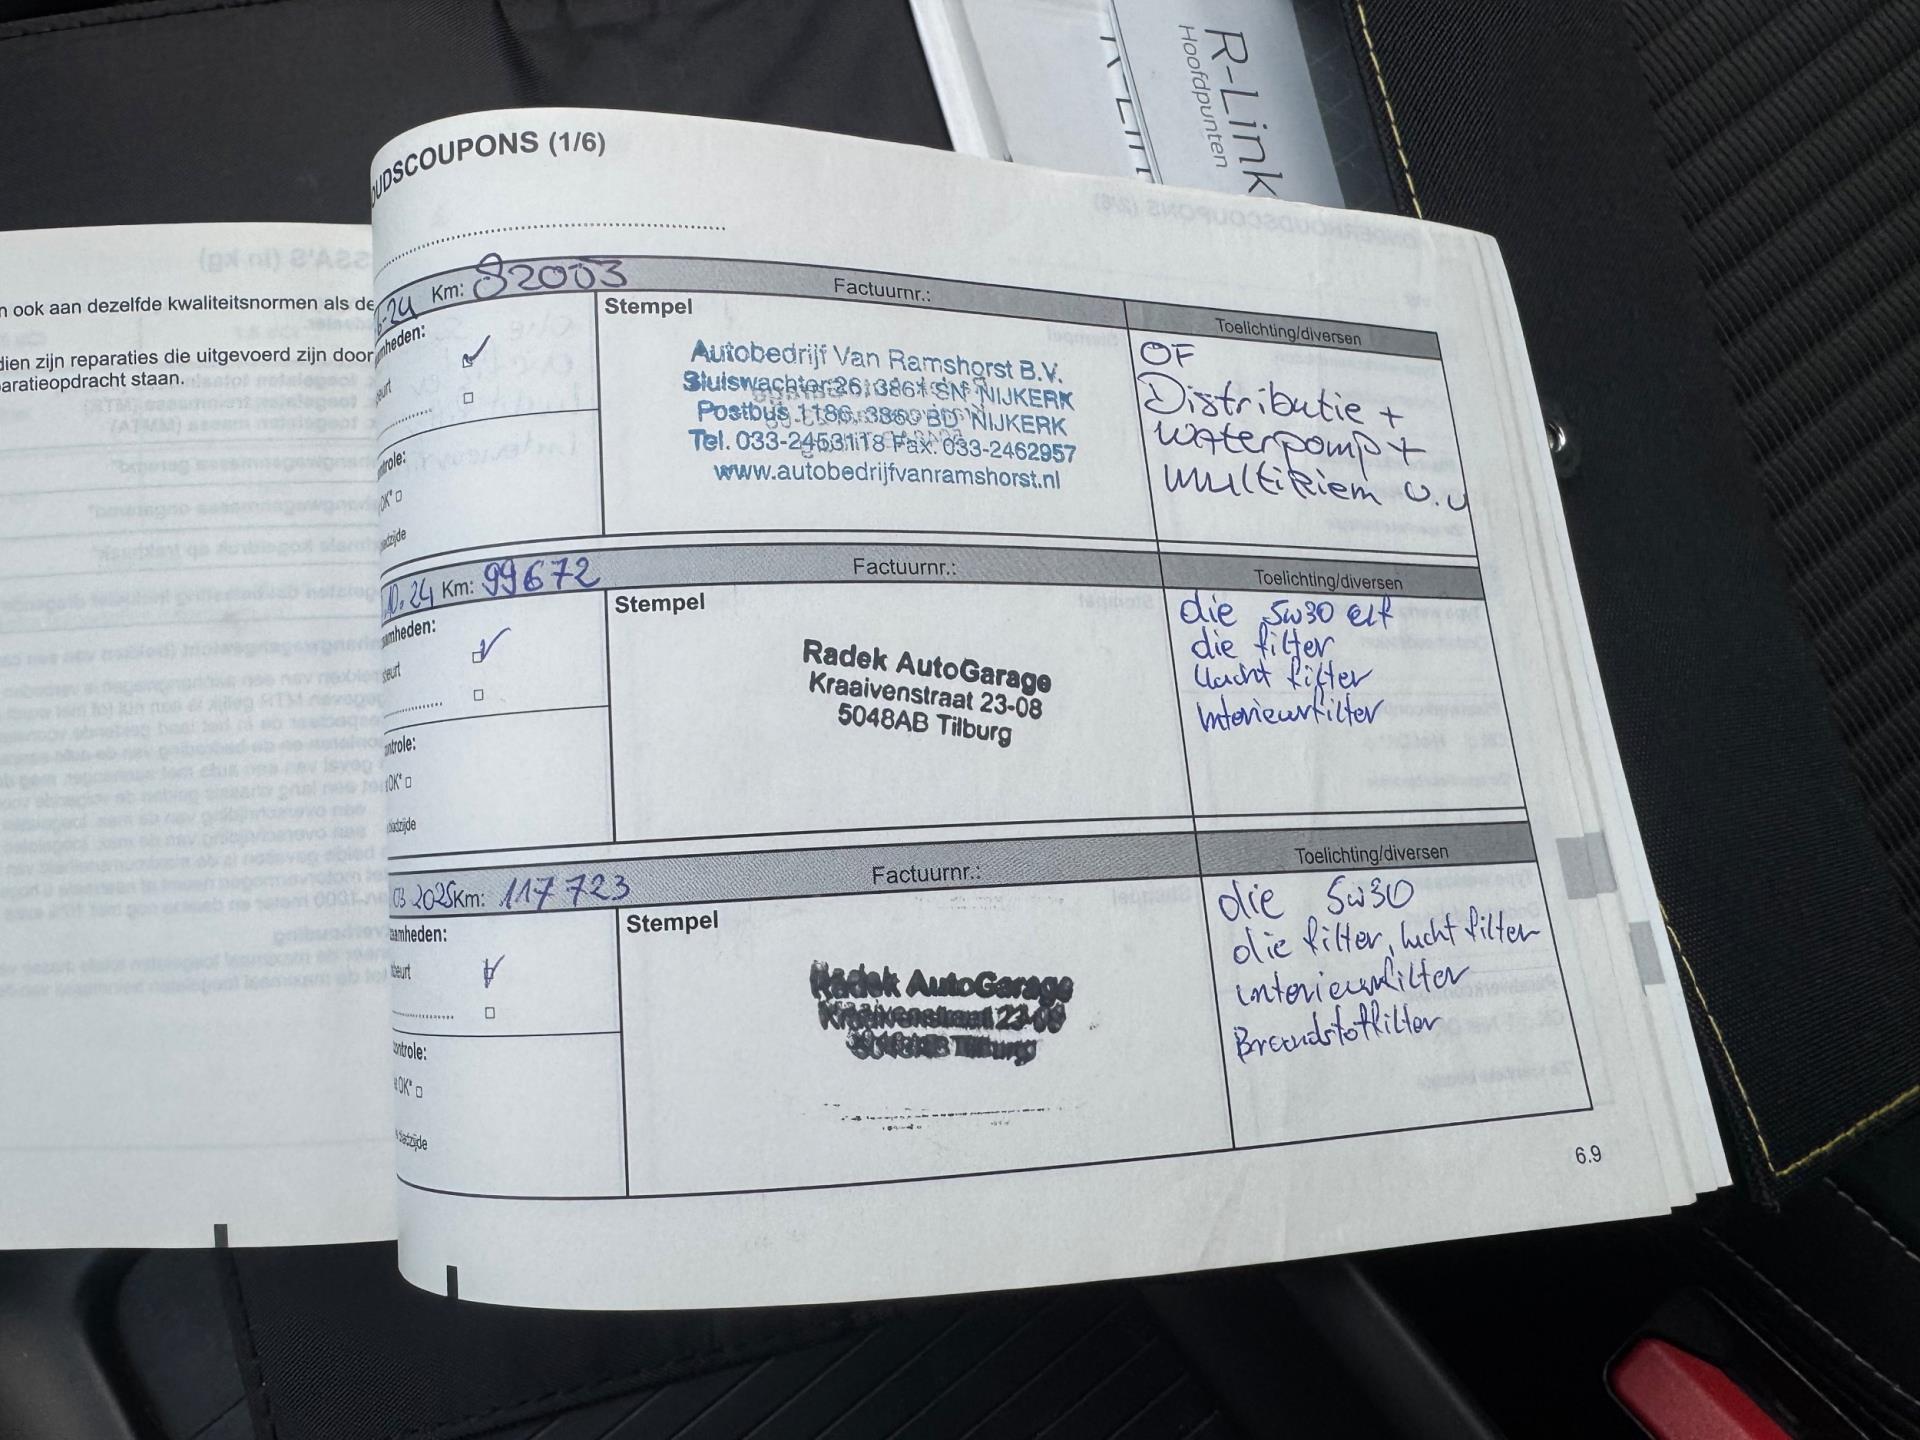 R-Link
Hoofdpunten
OUDSCOUPONS (1/6)
n ook aan dezelfde kwaliteitsnormen als de
dien zijn reparaties die uitgevoerd zijn door
paratieopdracht staan.
6-24 Km: 82003 Factuurnr.: Toelichting/diversen
amheden:
eurt
Stempel
Autobedrijf Van Ramshorst B.V.
Sluiswachter 26, 3861 SN NIJKERK
Postbus 1186, 3860 BD NIJKERK
Tel. 033-2453118 Fax. 033-2462957
www.autobedrijfvanramshorst.nl
OF
Distributie +
waterpomp +
multiriem v.v
ntrole:
OK*
adzijde
10.24 Km: 99672 Factuurnr.: Toelichting/diversen
amheden:
beurt
Stempel
Radek AutoGarage
Kraaivenstraat 23-08
5048AB Tilburg
die 5w30 elf
die filter
lucht filter
interieurfilter
ontrole:
OK*
bladzijde
03 2025 Km: 117 723 Factuurnr.: Toelichting/diversen
zaamheden:
beurt
Stempel
Radek AutoGarage
Kraaivenstraat 23-08
5048AB Tilburg
die 5w30
die filter, lucht filter
interieurfilter
Brandstoffilter
controle:
OK*
bladzijde
6.9